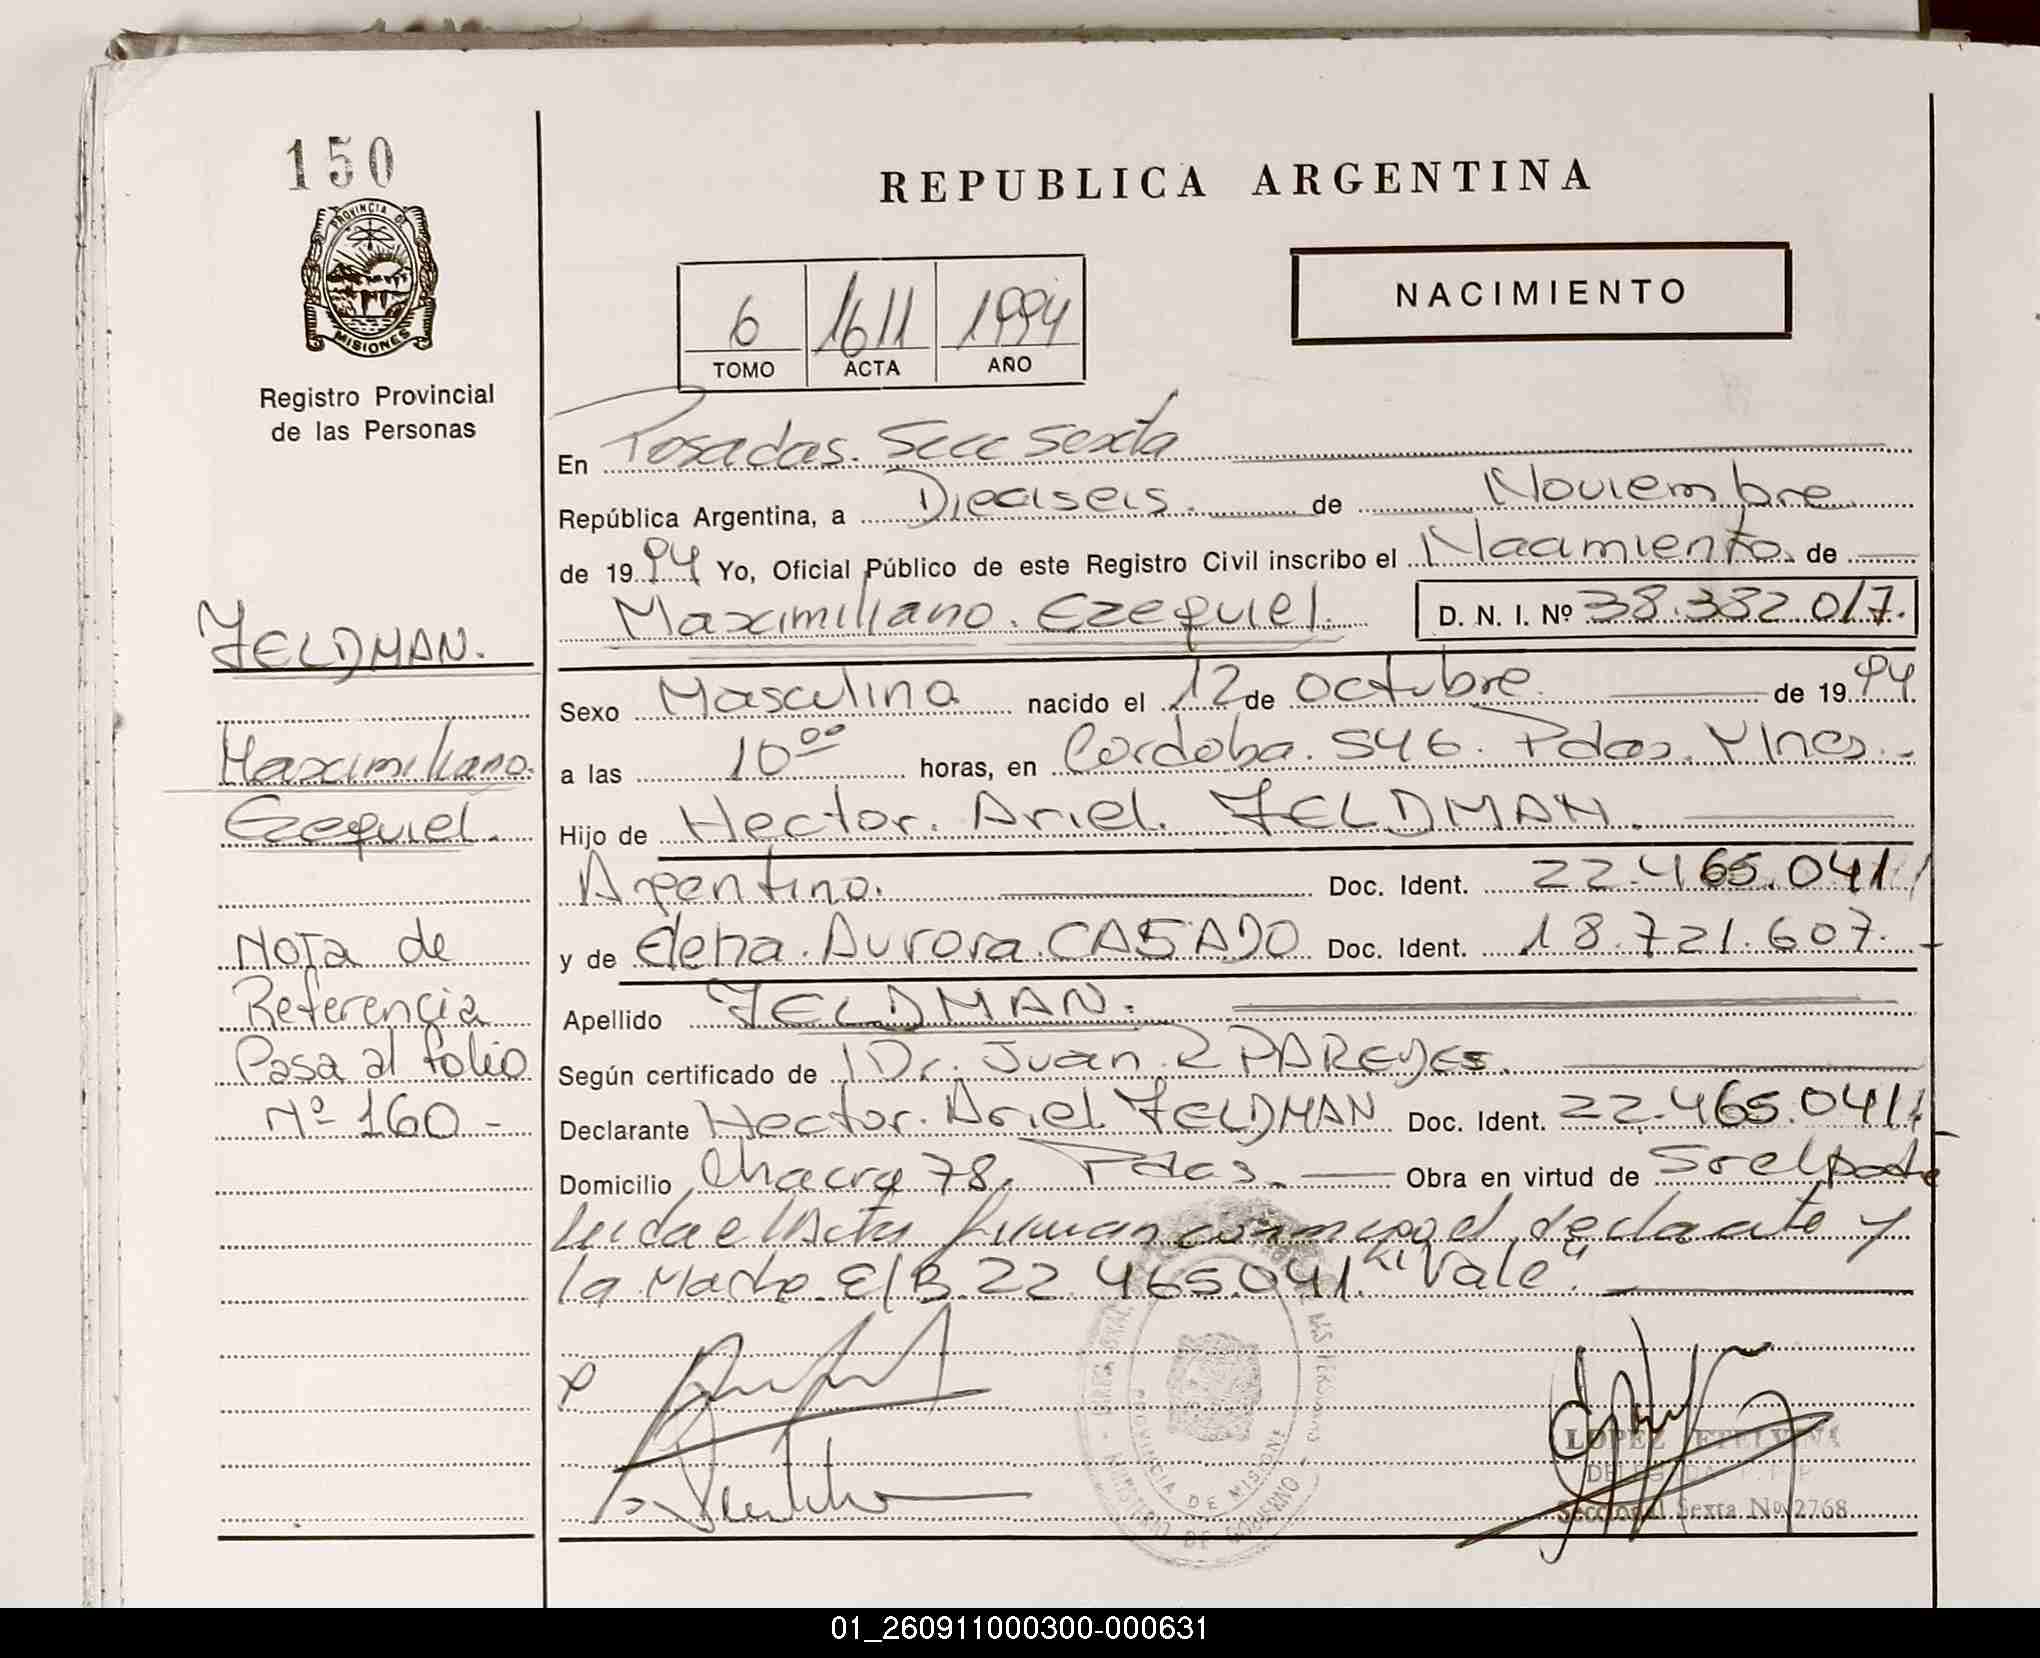 150
PROVINCIA DE
MISIONES
Registro Provincial
de las Personas
REPUBLICA ARGENTINA
NACIMIENTO
6 1611 1994
TOMO ACTA AÑO
En Posadas. Secc Sexta
República Argentina, a Dieciseis. de Noviembre
de 1994 Yo, Oficial Público de este Registro Civil inscribo el Nacimiento de
Maximiliano. Ezequiel. D. N. I. Nº 38.382.017.
Sexo Masculino nacido el 12 de octubre de 1994
a las 10 00 horas, en Cordoba. 546. Pdas. Mnes.-
Hijo de Hector. Ariel. FELDMAN.
Argentino. Doc. Ident. 22.465.041
y de Elena. Aurora. CASADO Doc. Ident. 18.721.607.
Apellido FELDMAN.
Según certificado de Dr. Juan. R PAREDES.
Declarante Hector. Ariel FELDMAN Doc. Ident. 22.465.041
Domicilio Chacra 78. Pdas. Obra en virtud de
Leida el Acta firman conmigo el declarante y
la Madre. E/B. 22.465.041. "Vale".
FELDMAN.
Maximiliano.
Ezequiel.
Nota de
Referencia
Pasa al folio
Nº 160 -
PROVINCIA DE MISIONES
MINISTERIO DE GOBIERNO
LOPEZ ETELVINA
DELEGADA
Seccional Sexta Nº 2768
01_260911000300-000631